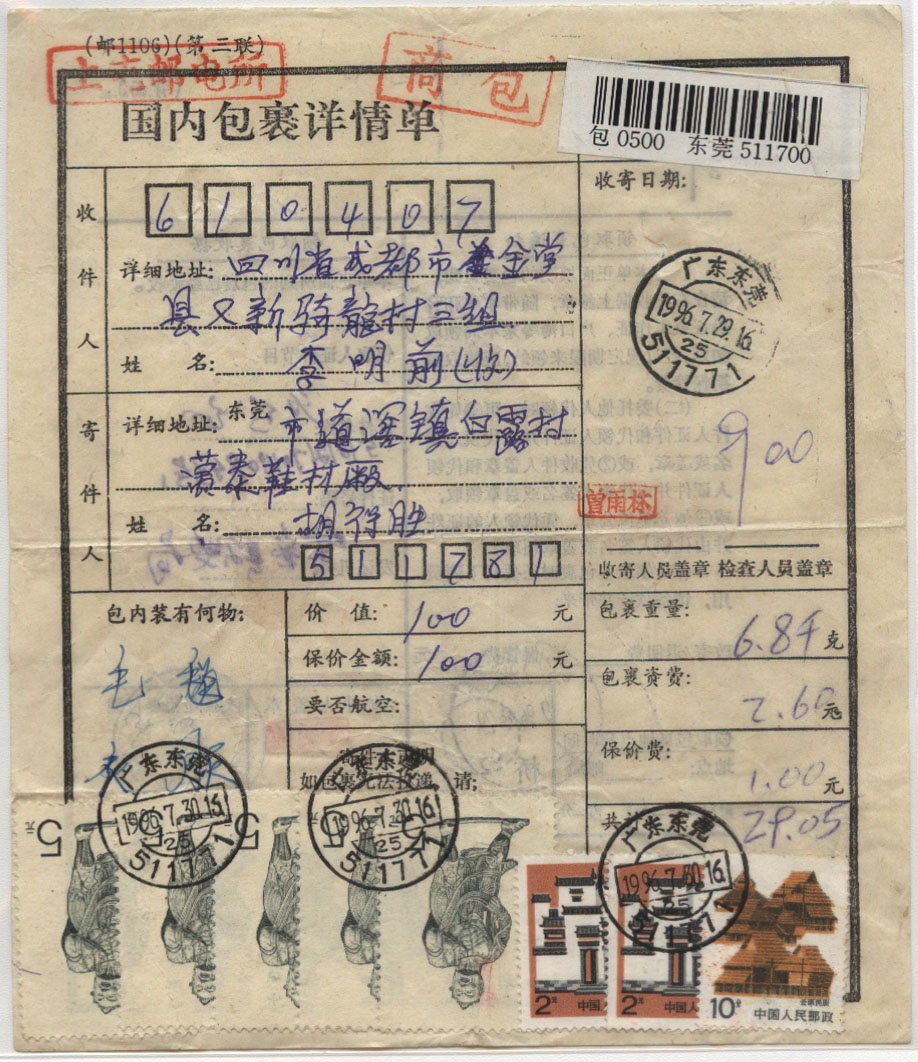 (邮1106)(第三联)
邮电所
商包
国内包裹详情单
包 0500 东莞 511700
收件人
610407
详细地址: 四川省成都市金堂
县又新骑龙村三组
姓 名: 李明前(收)
寄件人
详细地址: 东莞市道滘镇白鹭村
鞋材厂
姓 名: 胡得胜
511781
收寄日期:
广东东莞
1996.7.29.16
25
511771
900
曾雨林
收寄人员盖章 检查人员盖章
包内装有何物:
毛
价 值: 100 元
保价金额: 100 元
要否航空:
如包裹无法投递,请:
包裹重量: 6.8千克
包裹资费: 2.65元
保价费: 1.00元
共 29.05
广东东莞
1996.7.30.16
25
511771
广东东莞
1996.7.30.16
25
511771
广东东莞
1996.7.30.16
25
511771
5元
5元
5
2分
中国人
2分
中国人
10分
云南民居
中国人民邮政